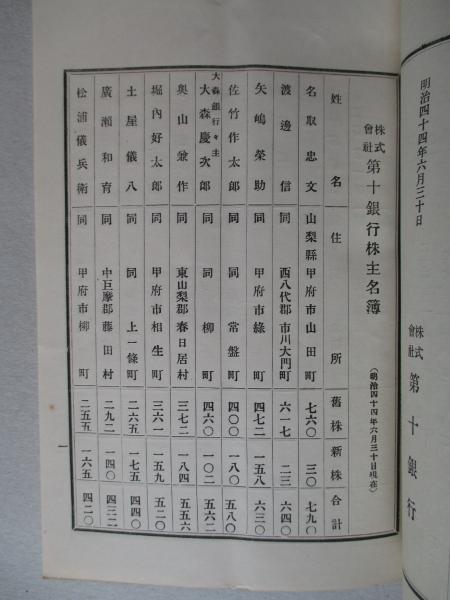 明治四十四年六月三十日
株式會社 第十銀行
株式會社 第十銀行株主名簿 (明治四十四年六月三十日現在)
姓名 住所 舊株 新株 合計
名取忠文 山梨縣甲府市山田町 七六〇 三〇 七九〇
渡邊信 同 西八代郡市川大門町 六一七 二三 六四〇
矢嶋榮助 同 甲府市綠町 四七二 一五八 六三〇
佐竹作太郎 同 同 常盤町 四〇〇 一八〇 五八〇
大森銀行々主 大森慶次郎 同 同 柳町 四六〇 一〇二 五六二
奧山兼作 同 東山梨郡春日居村 三七二 一八四 五五六
堀內好太郎 同 甲府市相生町 三六一 一五九 五二〇
土屋儀八 同 同 上一條町 二六五 一七五 四四〇
廣瀨和育 同 中巨摩郡藤田村 二九二 一四〇 四三二
松浦儀兵衛 同 甲府市柳町 二五五 一六五 四二〇
一